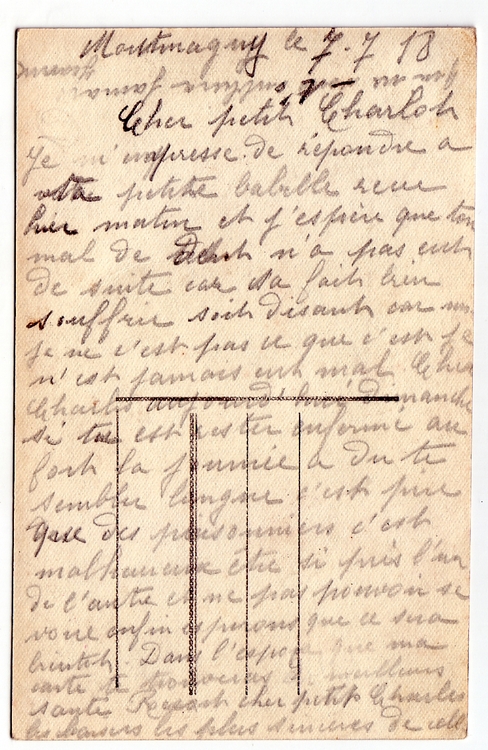 Montmagny le 7-7 18
Cher petit Charlot
Je m'empresse de répondre a
votre petite babille recue
hier matin et j'espère que ton
mal de dent n'a pas eut
de suite car sa fait bien
souffrir soit disant car moi
je ne c'est pas ce que c'est je
n'est jamais eut mal. Cher
Charles aujourd'hui dimanche
si tu est rester enfermé au
fort la journée a du te
sembler longue c'est pire
que des prisonniers c'est
malheureux etre si près l'un
de l'autre et ne pas pouvoir se
voir enfin esperons que ce sera
bientot. Dans l'espoir que ma
carte te trouveras meilleurs
santé Recoit cher petit Charles
les baisers les plus sinceres de celle